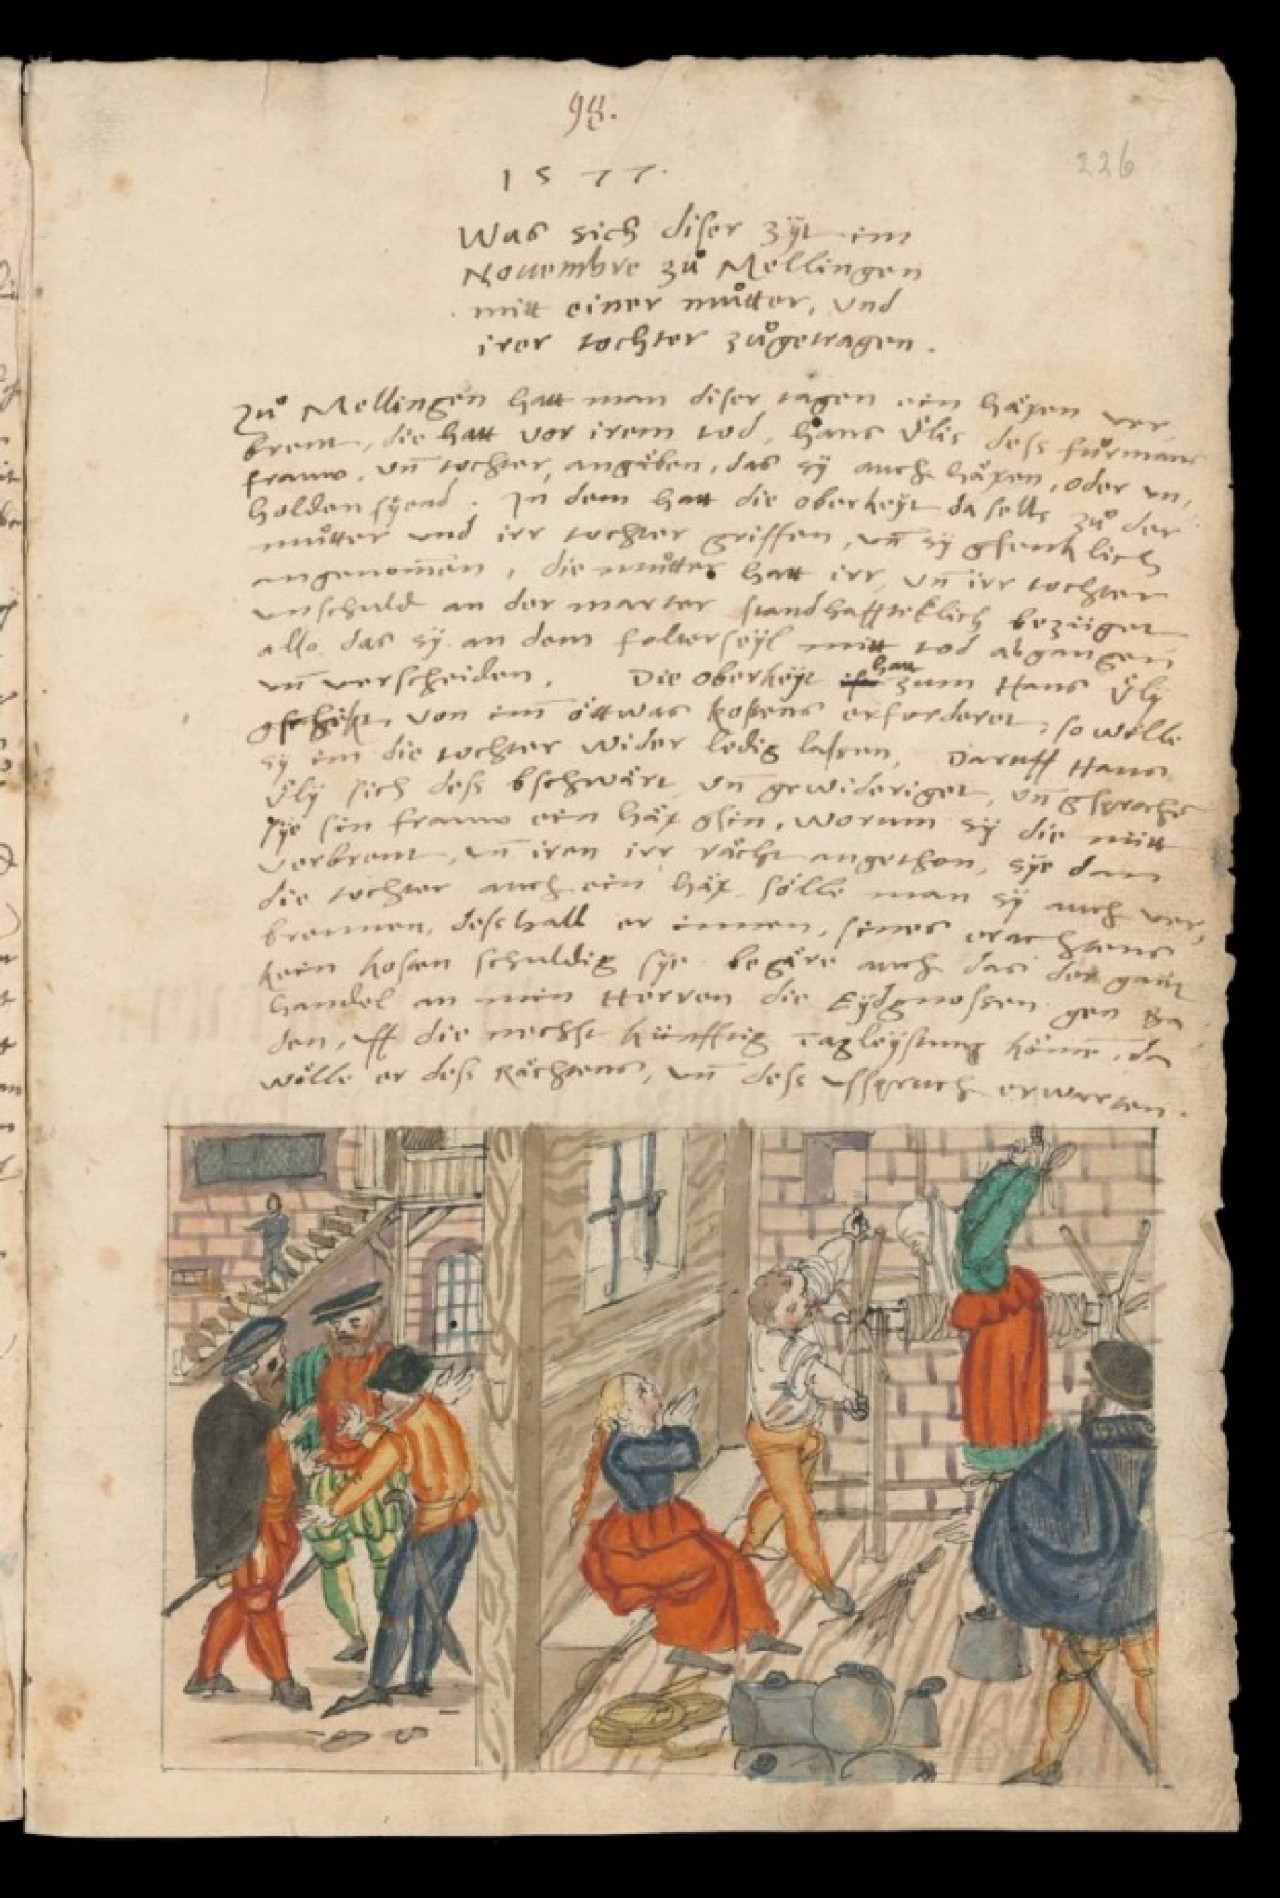 98.
226
1577.
Was sich diser zÿt im
Nouembre zů Mellingen
mitt einer můtter, vnd
irer tochter zůgetragen.
Zů Mellingen hatt man diser tagen ein häxen ver,
brent, die hatt vor irem tod, hans Ülis dess fůrmans
frauw, vn̄ tochter, angäben, das sÿ auch häxen, oder vn,
holden sÿend. In dem hatt die oberkeÿt daselbs zů der
můtter vnd irr tochter griffen, vn̄ sÿ gfenklich
angenom̄en, die můtter hatt irr, vn̄ irr tochter
vnschuld an der marter standhaffteklich bezüget
also das sÿ an dem folterseÿl mitt tod abgangen
vn̄ verscheiden. Die oberkeÿt hatt zum Hans Üly
gschikt, von im̄ öttwas kostens erforderet, so wölle
sÿ im die tochter wider ledig lassen, Daruff Hans
Üly sich dess bschwärt, vn̄ gewideriget, vn̄ gsprochē
sÿe sin frauw ein häx gsin, worum sÿ die nitt
verbrent, vn̄ iren irr rächt angethon, sÿe dan
die tochter auch ein häx, sölle man sÿ auch ver,
brennen, desshalb er innen, sines erachtens
kein kosten schuldig sÿe. begäre auch das der gantz
handel an min Herren die Eÿdgnossen gen Ba
den, vff die nechst künfftig Tagleÿstung köme, da
wölle er dess Rächtens, vn̄ dess vsspruch erwarten.